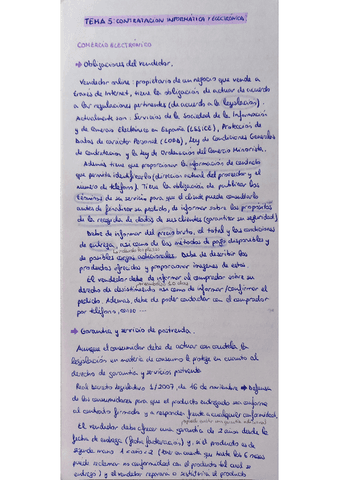 TEMA 5: CONTRATACIÓN INFORMÁTICA Y ELECTRÓNICA.
COMERCIO ELECTRÓNICO
⇒ Obligaciones del vendedor.
Vendedor online: propietario de un negocio que vende a
través de Internet, tiene la obligación de actuar de acuerdo
a las regulaciones pertinentes (de acuerdo a la legislación).
Actualmente son: Servicios de la Sociedad de la Información
y de Comercio Electrónico en España (LSSICE), Protección de
Datos de carácter Personal (LOPD), Ley de Condiciones Generales
de contratación y la Ley de Ordenación del Comercio Minorista.
Además tiene que proporcionar la información de contacto
que permita identificarlo (dirección actual del proveedor y el
número de teléfono). Tiene la obligación de publicar los
términos de su servicio para que el cliente pueda consultarlo
antes de finalizar su pedido, de informar sobre los propósitos
de la recogida de datos de sus clientes (garantizar su seguridad)
Debe de informar del precio bruto, el total y las condiciones
de entrega, así como de los métodos de pago disponibles y
de posibles cargos adicionales. Debe de describir los
productos ofrecidos y proporcionar imágenes de estos.
El vendedor debe de informar al comprador sobre su
derecho de desistimiento así como de informar/confirmar el
pedido. Además, debe de poder contactar con el comprador
por teléfono, correo ...
⇒ Garantía y servicio de postventa.
Aunque el consumidor debe de actuar con cautela la
legislación en materia de consumo le protege en cuanto al
derecho de garantía y servicios postventa
Real Decreto Legislativo 1/2007, de 16 de noviembre → Defensa
de los consumidores para que el producto entregado sea conforme
al contrato firmado y a responder frente a cualquier conformidad.
El vendedor debe ofrecer una garantía de 2 años desde la
fecha de entrega (fecha facturación) y, si el producto es de
segunda mano 1 año
puede reclamar su conformidad con el producto tal cual se
entregó) y el vendedor reparará o sustituirá el producto